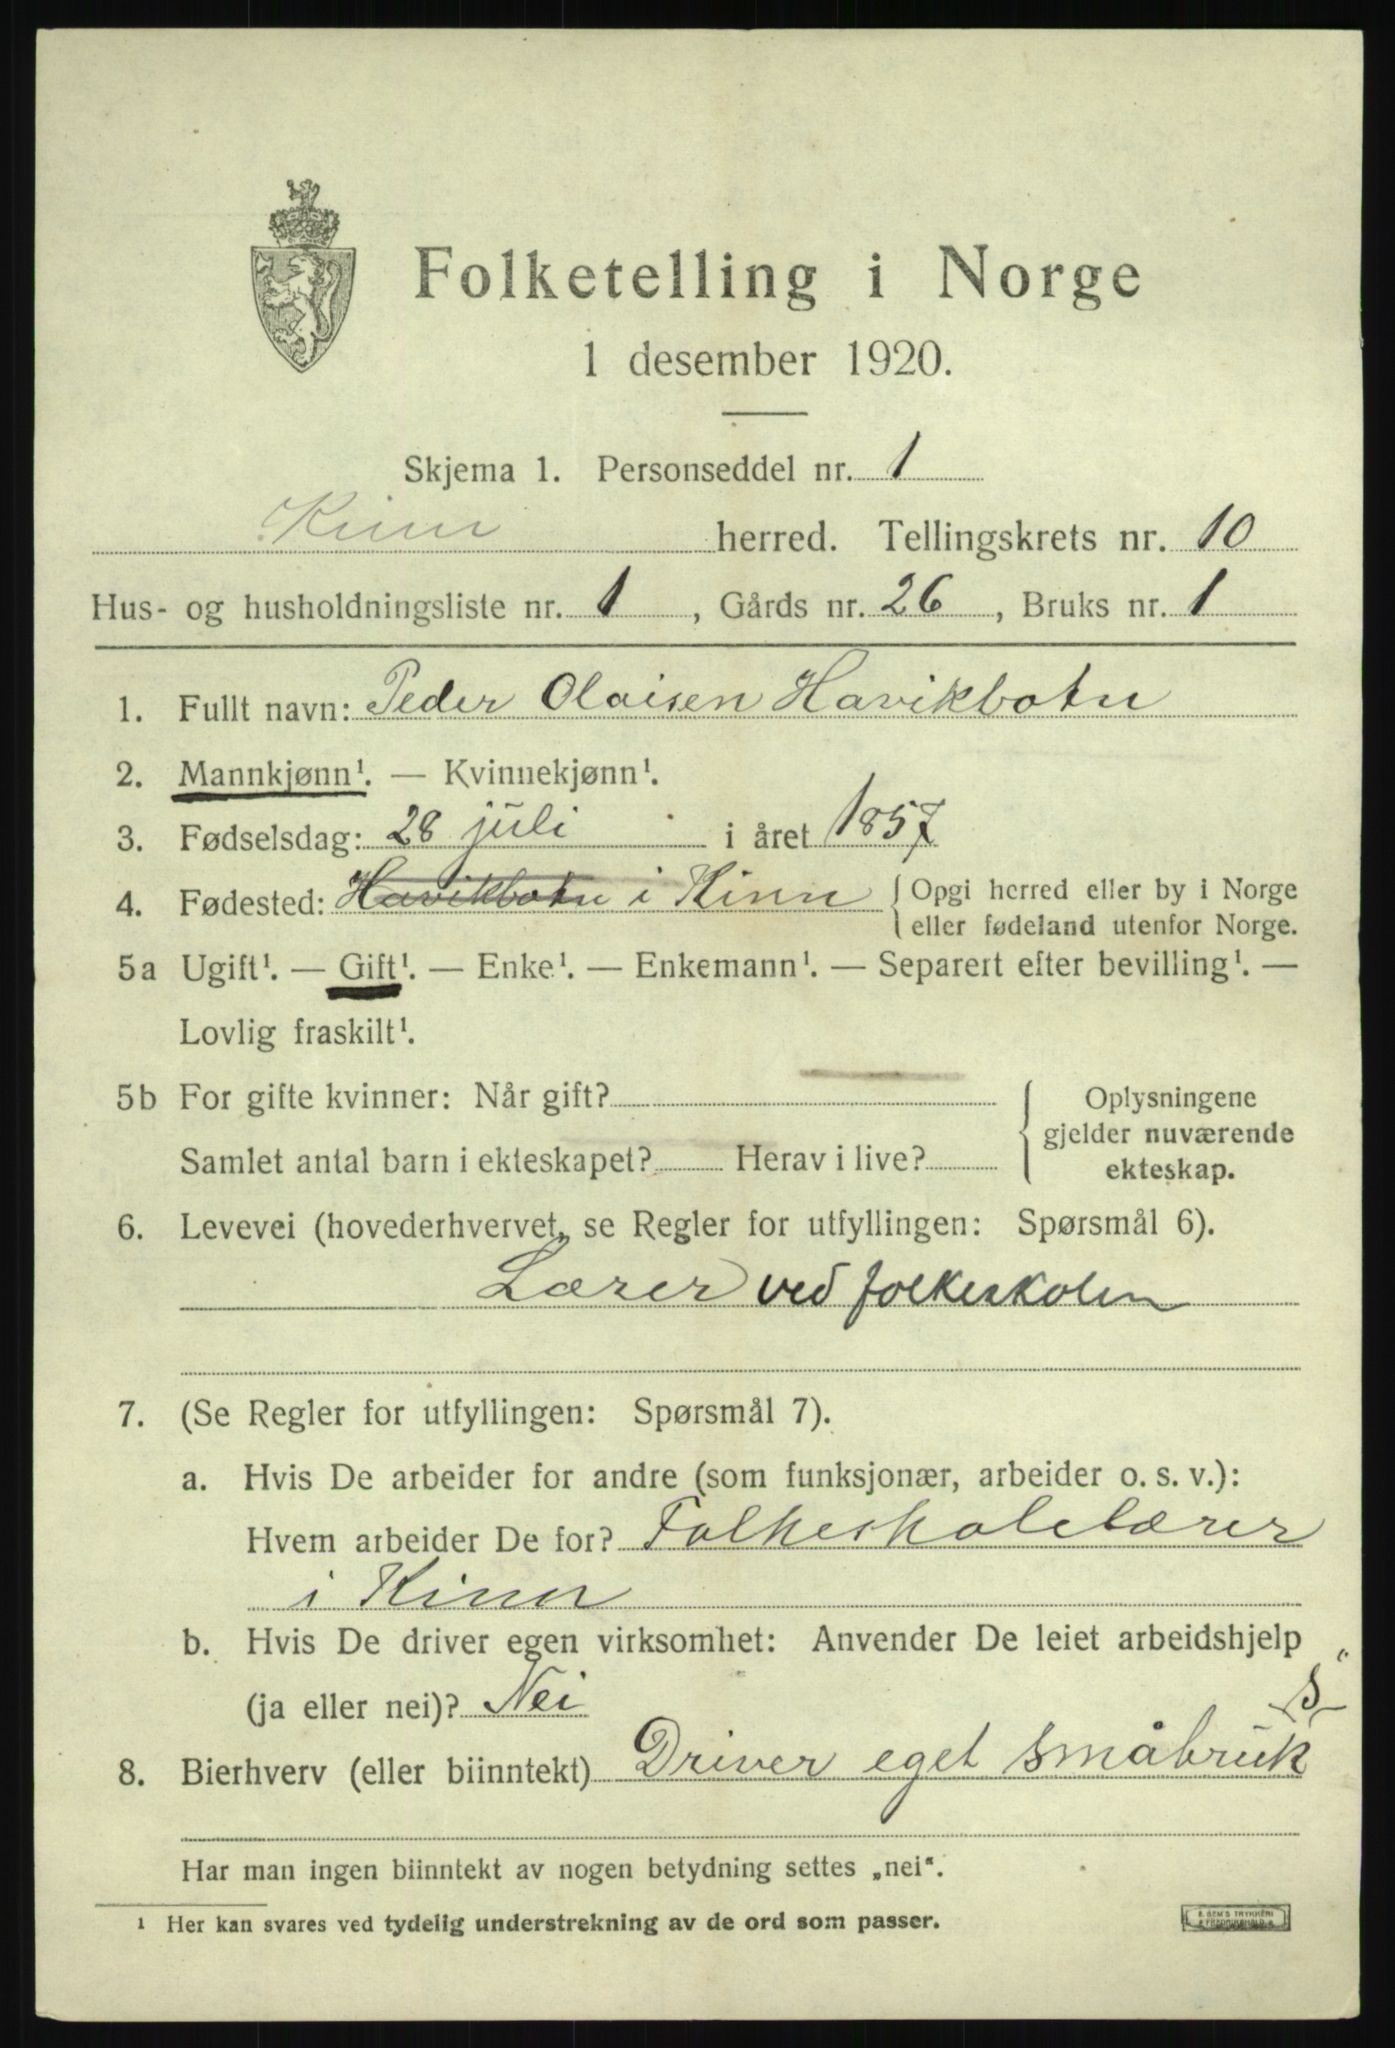 Folketelling i Norge
1 desember 1920.
Skjema 1. Personseddel nr. 1
Kinn herred. Tellingskrets nr. 10
Hus- og husholdningsliste nr. 1, Gårds nr. 26, Bruks nr. 1
1. Fullt navn: Peder Olaisen Havikbotn
2. Mannkjønn¹. — Kvinnekjønn¹.
3. Fødselsdag: 28 juli i året 1857
4. Fødested: Havikbotn i Kinn { Opgi herred eller by i Norge
eller fødeland utenfor Norge.
5a Ugift¹. — Gift¹. — Enke¹. — Enkemann¹. — Separert efter bevilling¹. —
Lovlig fraskilt¹.
5b For gifte kvinner: Når gift?
Samlet antal barn i ekteskapet? Herav i live?
{ Oplysningene
gjelder nuværende
ekteskap.
6. Levevei (hovederhvervet, se Regler for utfyllingen: Spørsmål 6).
Lærer ved folkeskolen
7. (Se Regler for utfyllingen: Spørsmål 7).
a. Hvis De arbeider for andre (som funksjonær, arbeider o. s. v.):
Hvem arbeider De for? Folkeskolelærer
i Kinn
b. Hvis De driver egen virksomhet: Anvender De leiet arbeidshjelp
(ja eller nei)? Nei
S
8. Bierhverv (eller biinntekt) Driver eget småbruk
Har man ingen biinntekt av nogen betydning settes „nei“.
¹ Her kan svares ved tydelig understrekning av de ord som passer.